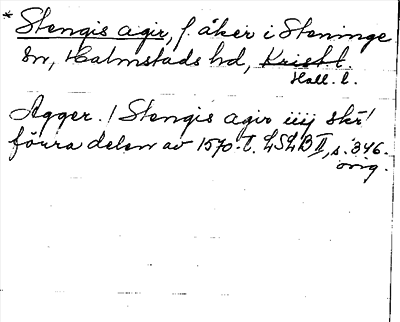 * Stengis agir, f. åker i Steninge
sn, Halmstads hd, Krist. l.
Hall. l.
Agger. / Stengis agir iiij skr /
förra delen av 1570-t. LSLB II, s. 346.
orig.